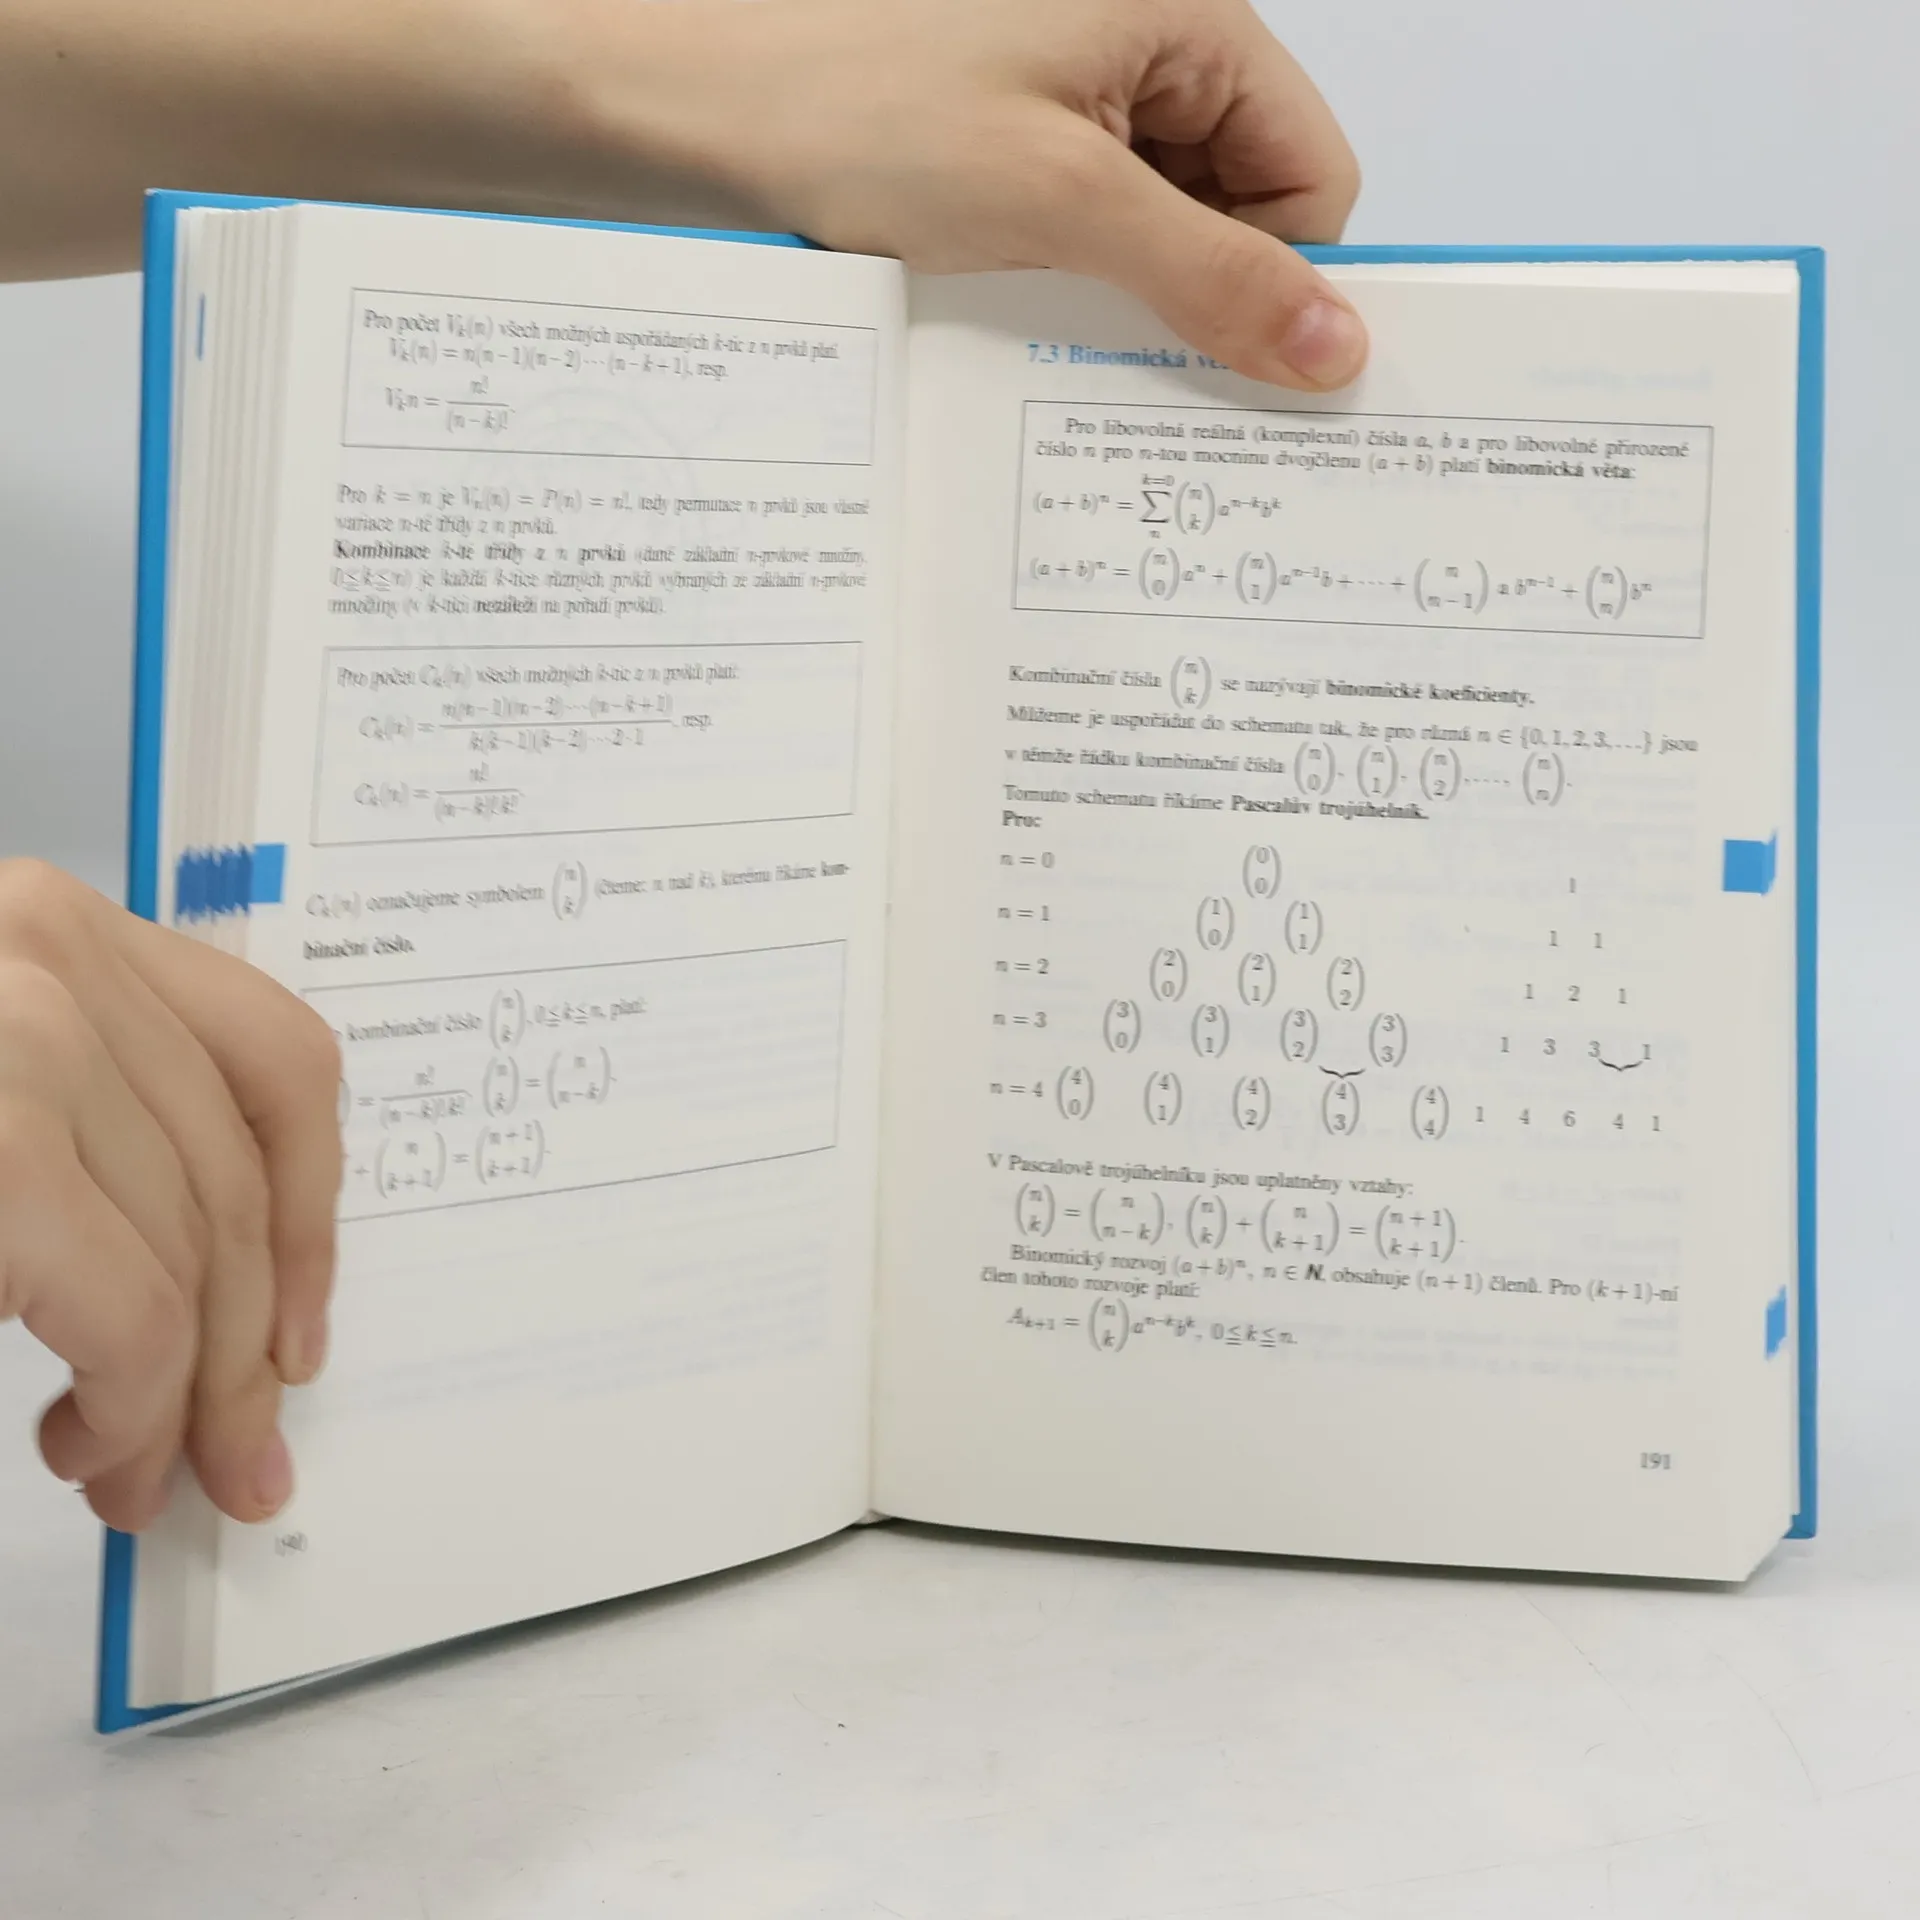 Pro počet Vₖ(n) všech možných uspořádaných k-tic z n prvků platí:
Vₖ(n) = n(n − 1)(n − 2) ··· (n − k + 1), resp.
Vₖn = n!/(n − k)!.
Pro k = n je Vₙ(n) = P(n) = n!, tedy permutace n prvků jsou vlastně
variace n-té třídy z n prvků.
Kombinace k-té třídy z n prvků (dané základní n-prvkové množiny,
0 ≦ k ≦ n) je každá k-tice různých prvků vybraných ze základní n-prvkové
množiny (v k-tici nezáleží na pořadí prvků).
Pro počet Cₖ(n) všech možných k-tic z n prvků platí:
Cₖ(n) = n(n − 1)(n − 2) ··· (n − k + 1)/k(k − 1)(k − 2) ··· 2 · 1, resp.
Cₖ(n) = n!/(n − k)! k!.
Cₖ(n) označujeme symbolem (n k) (čteme: n nad k), kterému říkáme kom-
binační číslo.
kombinační číslo (n k), 0 ≦ k ≦ n, platí:
= n!/(n − k)! k!, (n k) = (n n − k).
+ (n k + 1) = (n + 1 k + 1).
190
7.3 Binomická
Pro libovolná reálná (komplexní) čísla a, b a pro libovolné přirozené
číslo n pro n-tou mocninu dvojčlenu (a + b) platí binomická věta:
k=0
(a + b)ⁿ = ∑ (n k) aⁿ⁻ᵏbᵏ
n
(a + b)ⁿ = (n 0) aⁿ + (n 1) aⁿ⁻¹b + ··· + (n n − 1) a bⁿ⁻¹ + (n n) bⁿ
Kombinační čísla (n k) se nazývají binomické koeficienty.
Můžeme je uspořádat do schematu tak, že pro různá n ∈ {0, 1, 2, 3, ...} jsou
v témže řádku kombinační čísla (n 0), (n 1), (n 2), ..., (n n).
Tomuto schematu říkáme Pascalův trojúhelník.
Pro:
n = 0 (0 0) 1
n = 1 (1 0) (1 1) 1 1
n = 2 (2 0) (2 1) (2 2) 1 2 1
n = 3 (3 0) (3 1) (3 2) (3 3) 1 3 3 1
n = 4 (4 0) (4 1) (4 2) (4 3) (4 4) 1 4 6 4 1
V Pascalově trojúhelníku jsou uplatněny vztahy:
(n k) = (n n − k), (n k) + (n k + 1) = (n + 1 k + 1).
Binomický rozvoj (a + b)ⁿ, n ∈ N, obsahuje (n + 1) členů. Pro (k + 1)-ní
člen tohoto rozvoje platí:
Aₖ₊₁ = (n k) aⁿ⁻ᵏbᵏ, 0 ≦ k ≦ n.
191